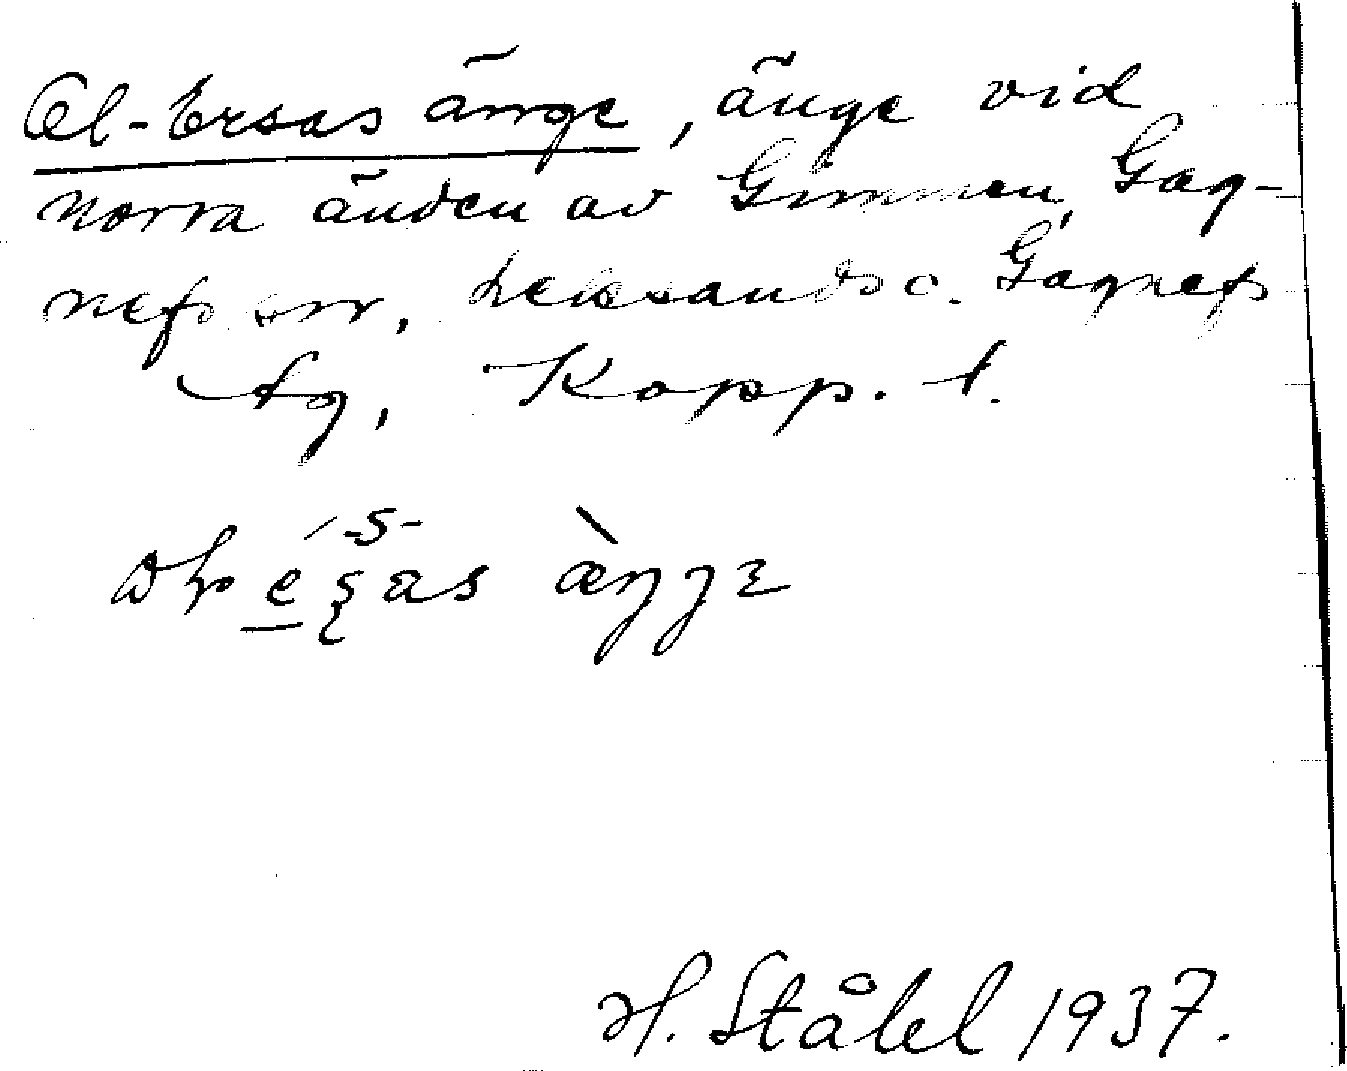 Ol-Ersas änge, änge vid
norra änden av Gimmen, Gag-
nefs sn, Leksands o. Gagnefs
tg, Kopp. l.
-s-
as æŋgɛ
H. Ståhl 1937.